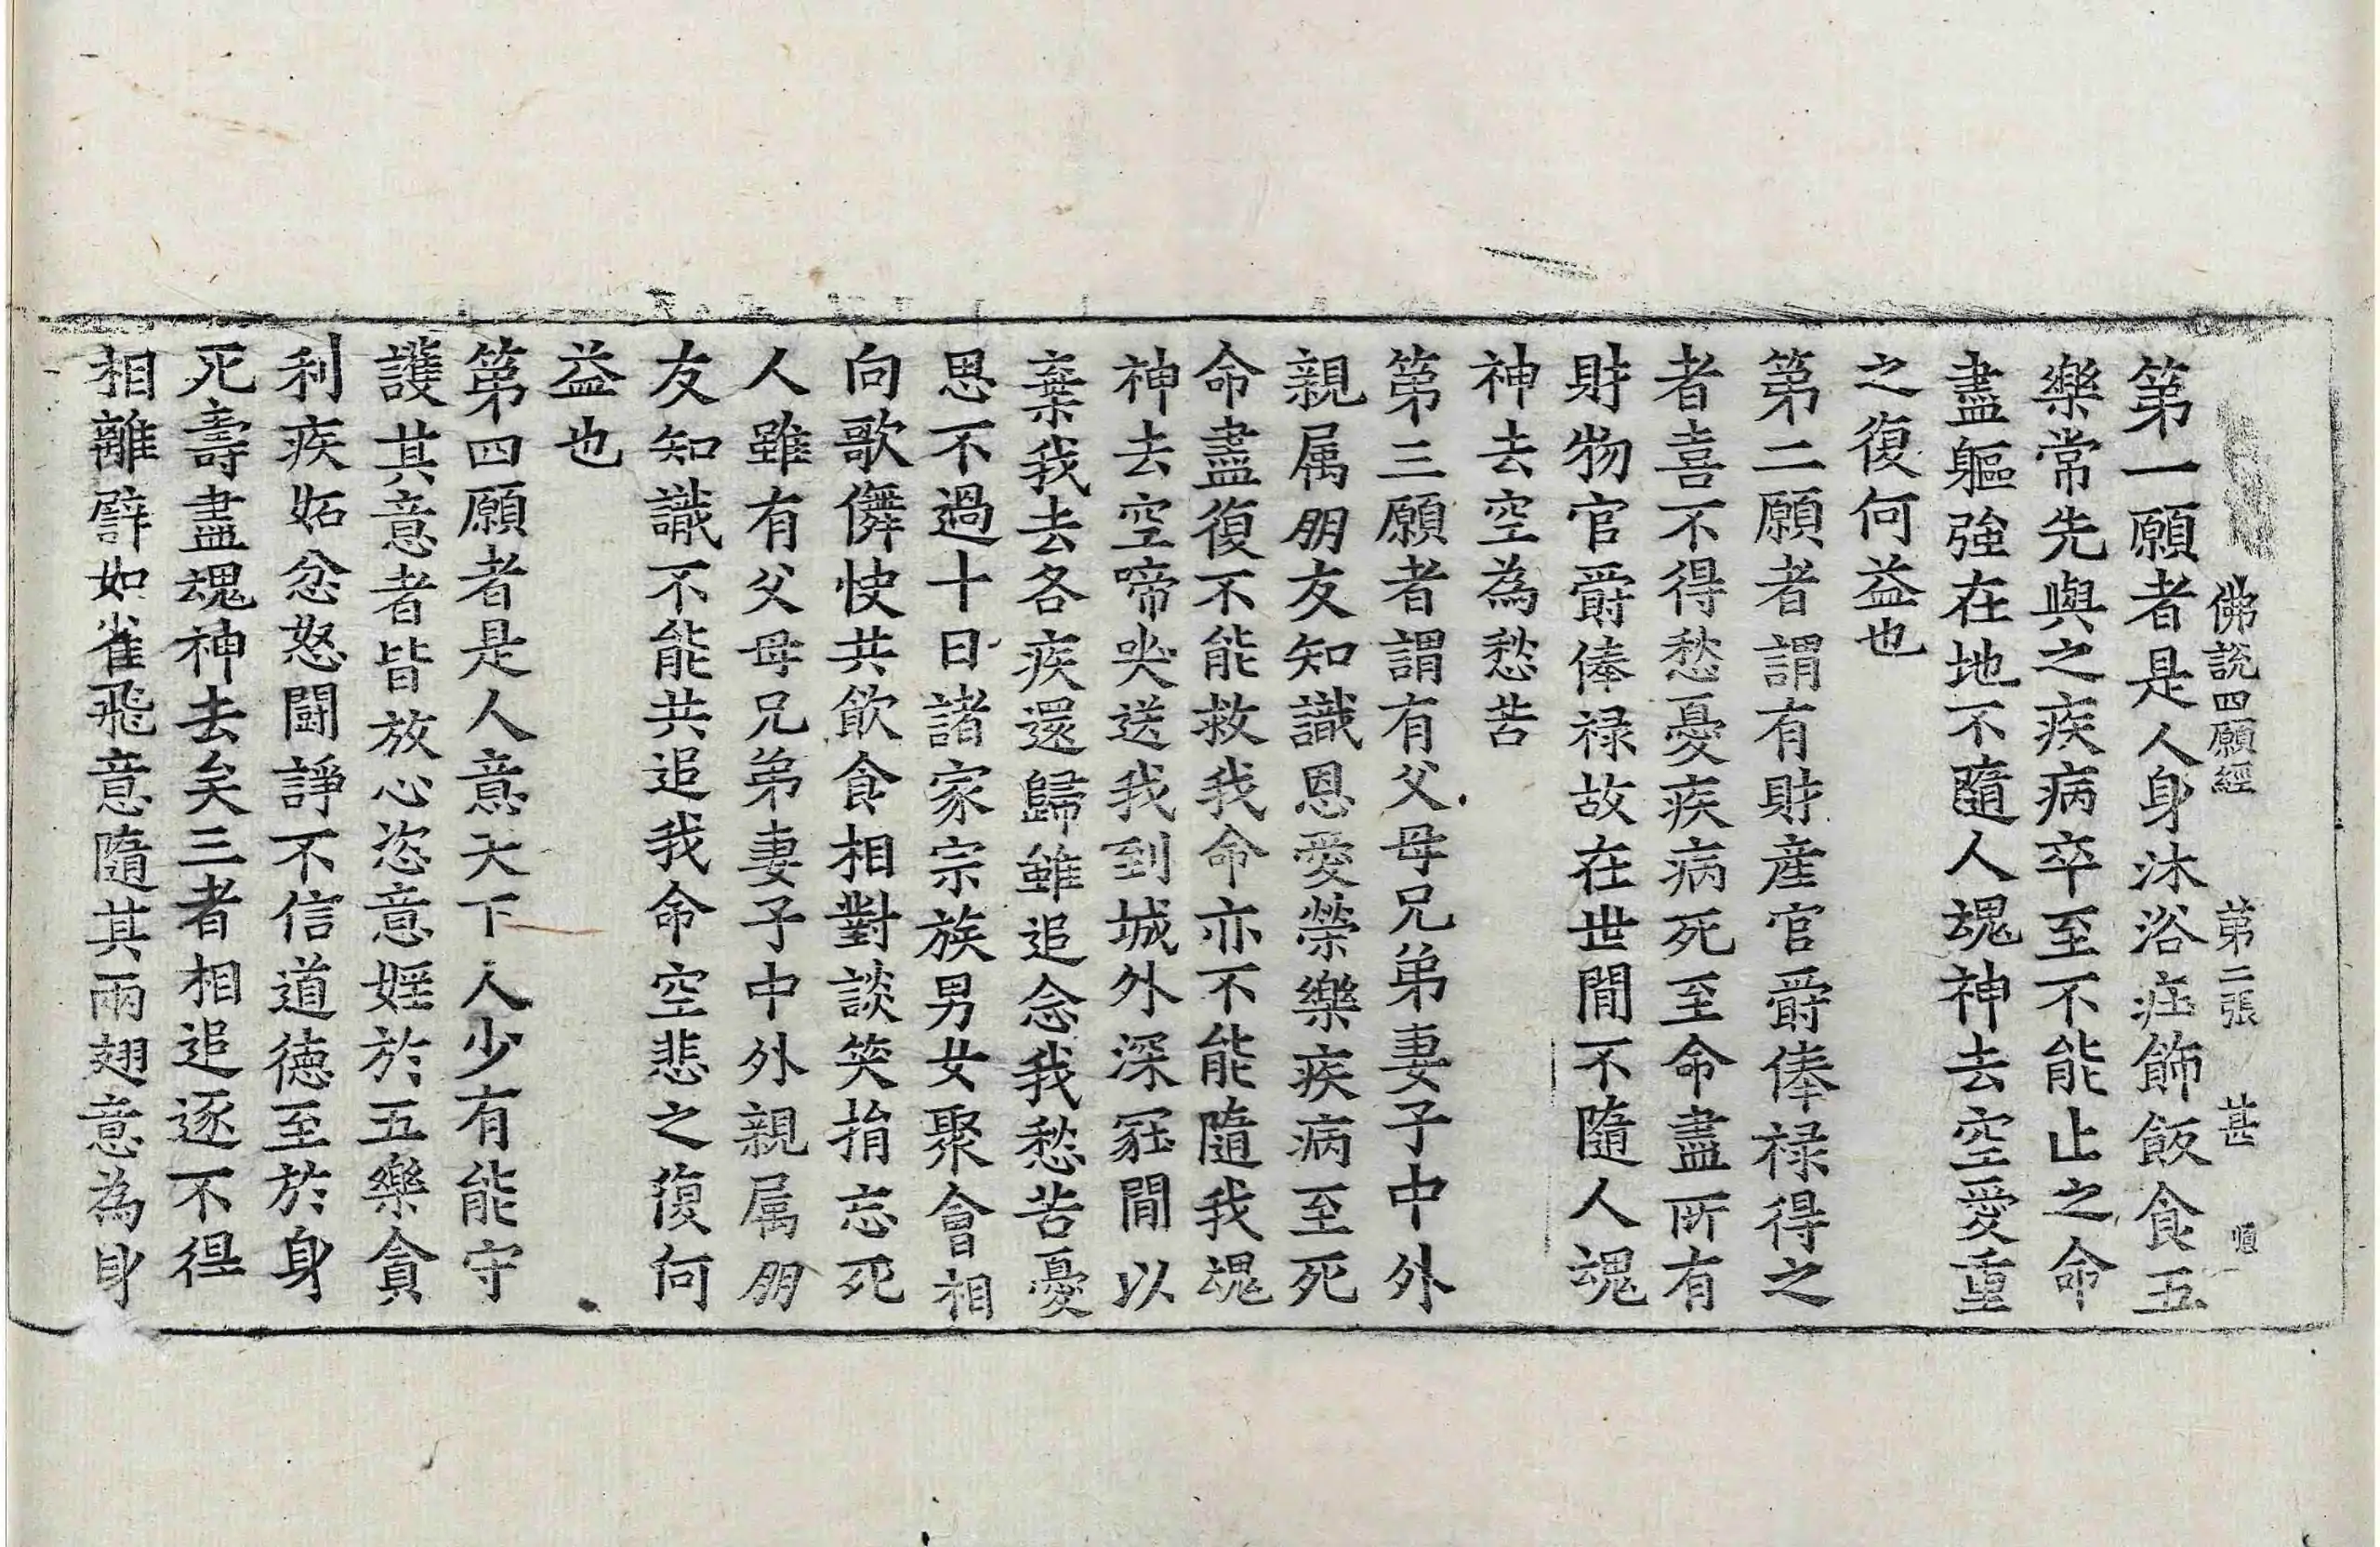 佛說四願經 第二張 甚 順
第一願者是人身沐浴莊飾飯食五
樂常先與之疾病卒至不能止之命
盡軀強在地不隨人魂神去空愛重
之復何益也
第二願者謂有財産官爵俸禄得之
者喜不得愁憂疾病死至命盡所有
財物官爵俸禄故在世閒不隨人魂
神去空為愁苦
第三願者謂有父母兄弟妻子中外
親属朋友知識恩愛榮樂疾病至死
命盡復不能救我命亦不能隨我魂
神去空啼哭送我到城外深冢閒以
棄我去各疾還歸雖追念我愁苦憂
思不過十日諸家宗族男女聚會相
向歌儛快共飲食相對談笑捐忘死
人雖有父母兄弟妻子中外親属朋
友知識不能共追我命空悲之復何
益也
第四願者是人意天下人少有能守
護其意者皆放心恣意婬於五樂貪
利疾妬忿怒鬪諍不信道德至於身
死壽盡魂神去矣三者相追逐不得
相離譬如雀飛意隨其兩翅意為身